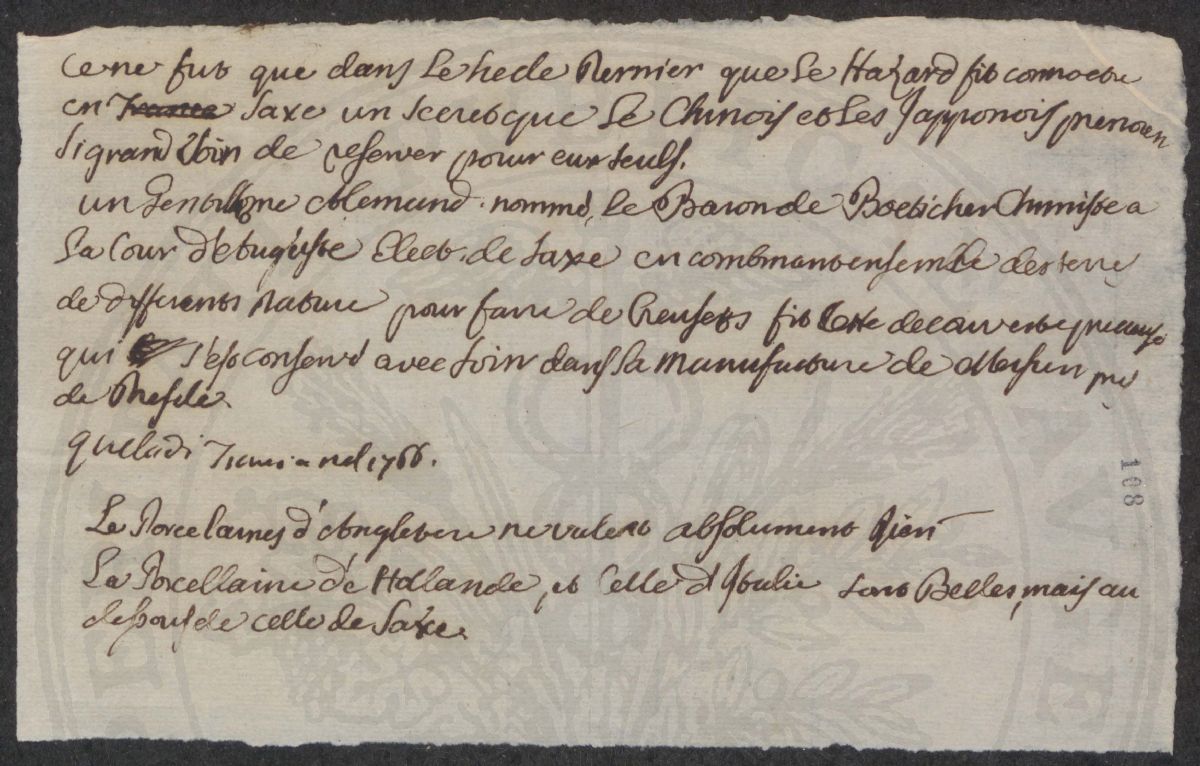 Ce ne fut que dans le siecle Dernier que le Hazard fit connoctre
en France Saxe un secret que le Chinois et les Japponois prenoien
si grand soin de reserver pour eux seuls.
un Gentilhome Allemand nommé, le Baron de Boeticher Chimiste a
la Cour d'Auguste Elect. de Saxe en combinant ensemble des terre
de differents Nature pour faire de Creusets fit Cette decouverte precieuse
qui s'est conservé avec soin dans la Manufacture de Meissen pré
de Dresde.
1766.
Le Porcelaines d'Angletere ne valent absolument Rien
La Porcellaine de Hollande, et Celle d'Italie sont Belles, mais au
dessous de celle de Saxe.
108